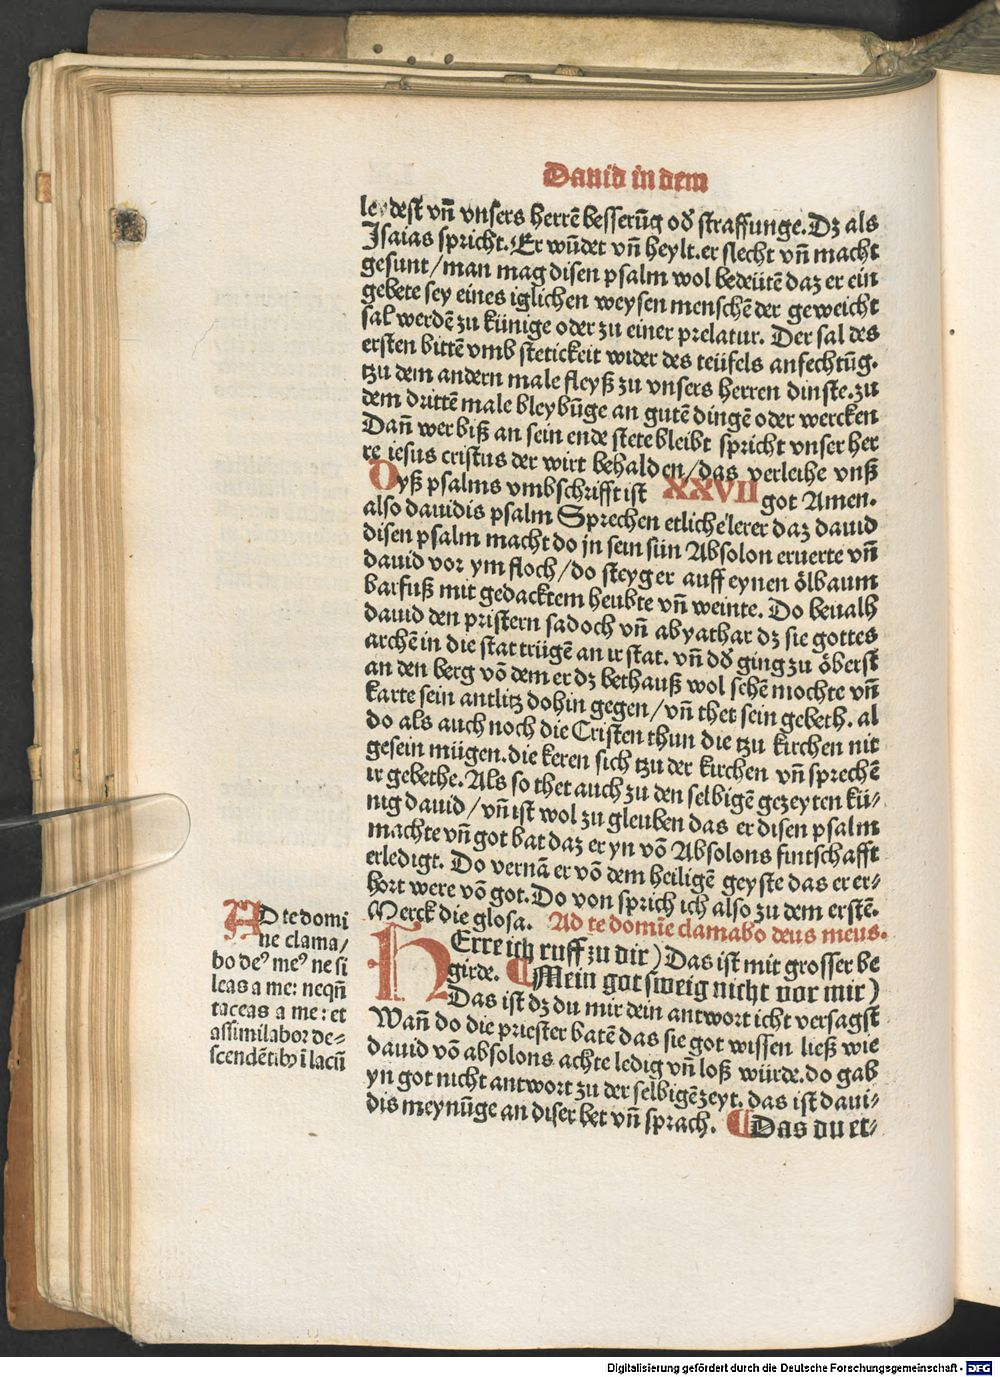 Dauid in dem
leydest vn̄ vnsers herrē besserūg od̕ straffunge. Dz als
Isaias spricht. Er wūdet vn̄ heylt. er slecht vn̄ macht
gesunt / man mag disen psalm wol bedeütē daz er ein
gebete sey eines iglichen weysen menschē der geweicht
sal werdē zu künige oder zu einer prelatur. Der sal des
ersten bittē vmb stetickeit wider des teüfels anfechtūg.
tzu dem andern male fleyß zu vnsers herren dinste. zu
dem drittē male bleybūge an gutē dingē oder wercken
Dan̄ wer biß an sein ende stete bleibt spricht vnser her
re iesus cristus der wirt behalden / das verleihe vnß
Dyß psalms vmbschrifft ist XXVII got Amen.
also dauidis psalm Sprechen etliche lerer daz dauid
disen psalm macht do jn sein sün Absolon eruerte vn̄
dauid vor ym floch / do steyg er auff eynen ölbaum
barfuß mit gedacktem heubte vn̄ weinte. Do beualh
dauid den pristern sadoch vn̄ abyathar dz sie gottes
archē in die stat trügē an ir stat. vn̄ dd̕ ging zu öberst
an den berg vō dem er dz bethauß wol sehē mochte vn̄
karte sein antlitz dohin gegen / vn̄ thet sein gebeth. al
do als auch noch die Cristen thun die tzu kirchen nit
gesein mügen. die keren sich tzu der kirchen vn̄ sprechē
ir gebethe. Als so thet auch zu den selbigē gezeyten kü⸗
nig dauid / vn̄ ist wol zu gleuben das er disen psalm
machte vn̄ got bat daz er yn vō Absolons fintschafft
erledigt. Do vernā er vō dem heiligē geyste das er er⸗
hort were vō got. Do von sprich ich also zu dem erstē.
Merck die glosa. Ad te domīe clamabo deus meus.
HErre ich ruff zu dir) Das ist mit grosser be
girde. ¶ Mein got sweig nicht vor mir)
Das ist dz du mir dein antwort icht versagst
Wan̄ do die priester batē das sie got wissen ließ wie
dauid vō absolons achte ledig vn̄ loß würde. do gab
yn got nicht antwort zu der selbigē zeyt. das ist daui⸗
dis meynūge an diser bet vn̄ sprach. ¶ Das du er⸗
AD te domi
ne clama/
bo deꝰ meꝰ ne si
leas a me: neqn̄
taceas a me: et
assimilabor de⸗
scendētibꝫ ī lacū
Digitalisierung gefördert durch die Deutsche Forschungsgemeinschaft - DFG